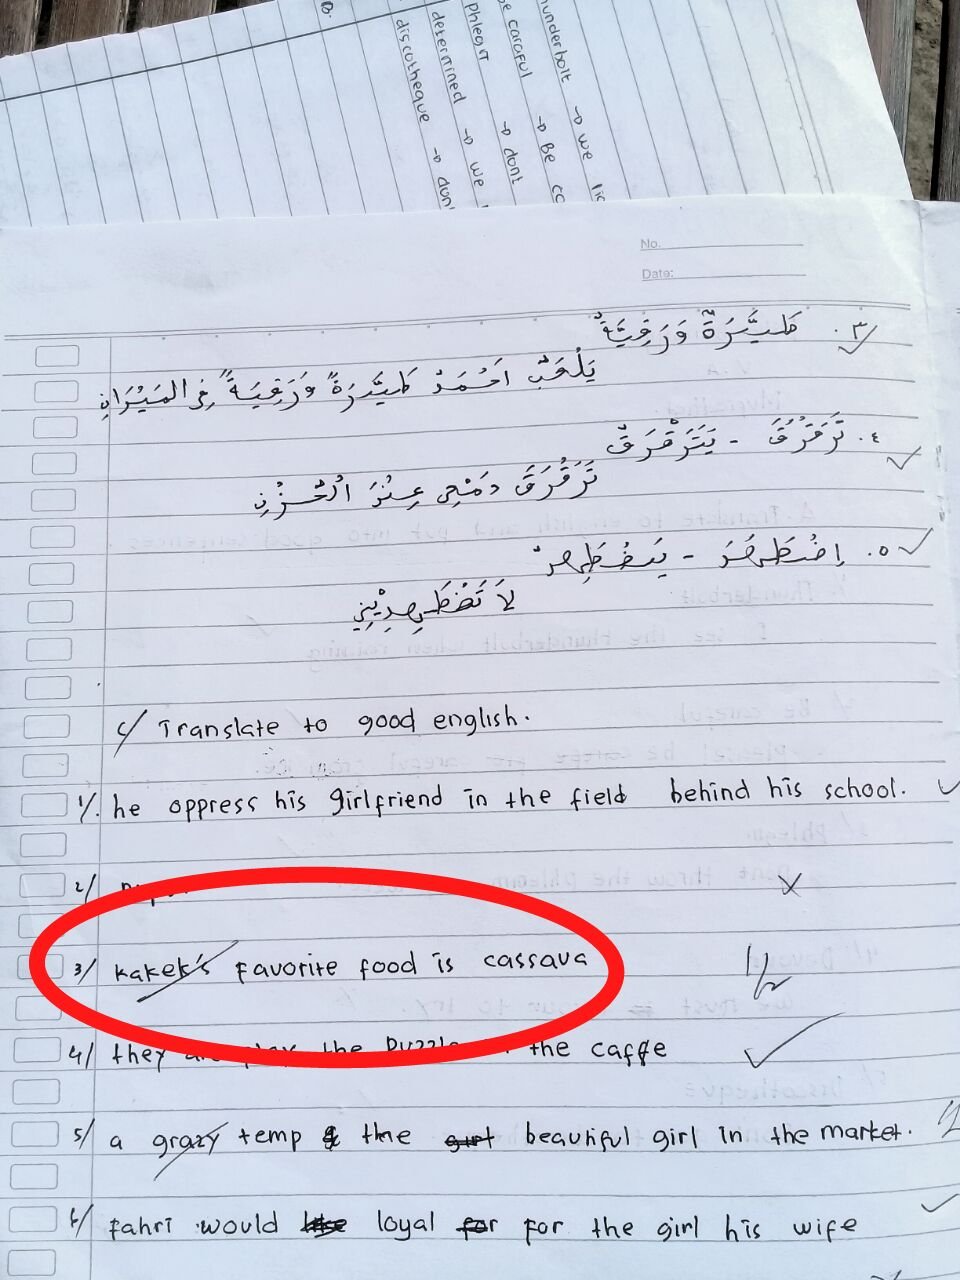 hunderbolt → we
be caraful → Be
phlegm → dont
determined → we
discotheque → don'
B.
No.
Date:
٣. طَيَّرَةٌ وَرَقِيَّةٌ
يَلْعَبُ اَحْمَدُ طَيَّرَةً وَرَقِيَةً فِى المَيْدَانِ
٤. تَرَقْرَقَ - يَتَرَقْرَقُ
تَرَقْرَقَ دَمْعِى عِنْدَ الْحُزْنِ
٥. اِضْطَهَدَ - يَضْطَهِدُ
لاَ تَضْطَهِدِيْنِي
C/ Translate to good english.
1/. he oppress his girlfriend in the field behind his school.
2/
3/ kakek's favorite food is cassava
1/2
4/ they the Puzzle the caffe
5/ a grazy temp the girl beautiful girl in the market.
6/ fahri would loyal for for the girl his wife